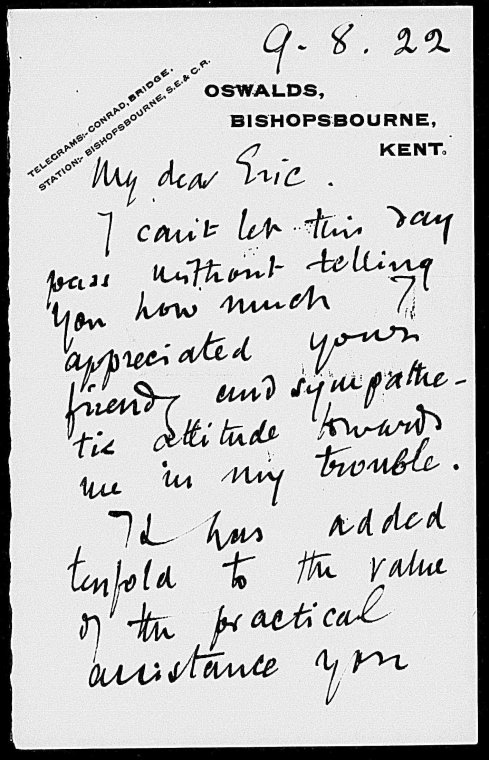 9. 8. 22
TELEGRAMS:- CONRAD, BRIDGE.
STATION:- BISHOPSBOURNE, S.E. & C.R.
OSWALDS,
BISHOPSBOURNE,
KENT.
My dear Eric.
I can't let this day
pass without telling
you how much I
appreciated your
friendly and sympathe-
tic attitude towards
me in my trouble.
It has added
tenfold to the value
of the practical
assistance you